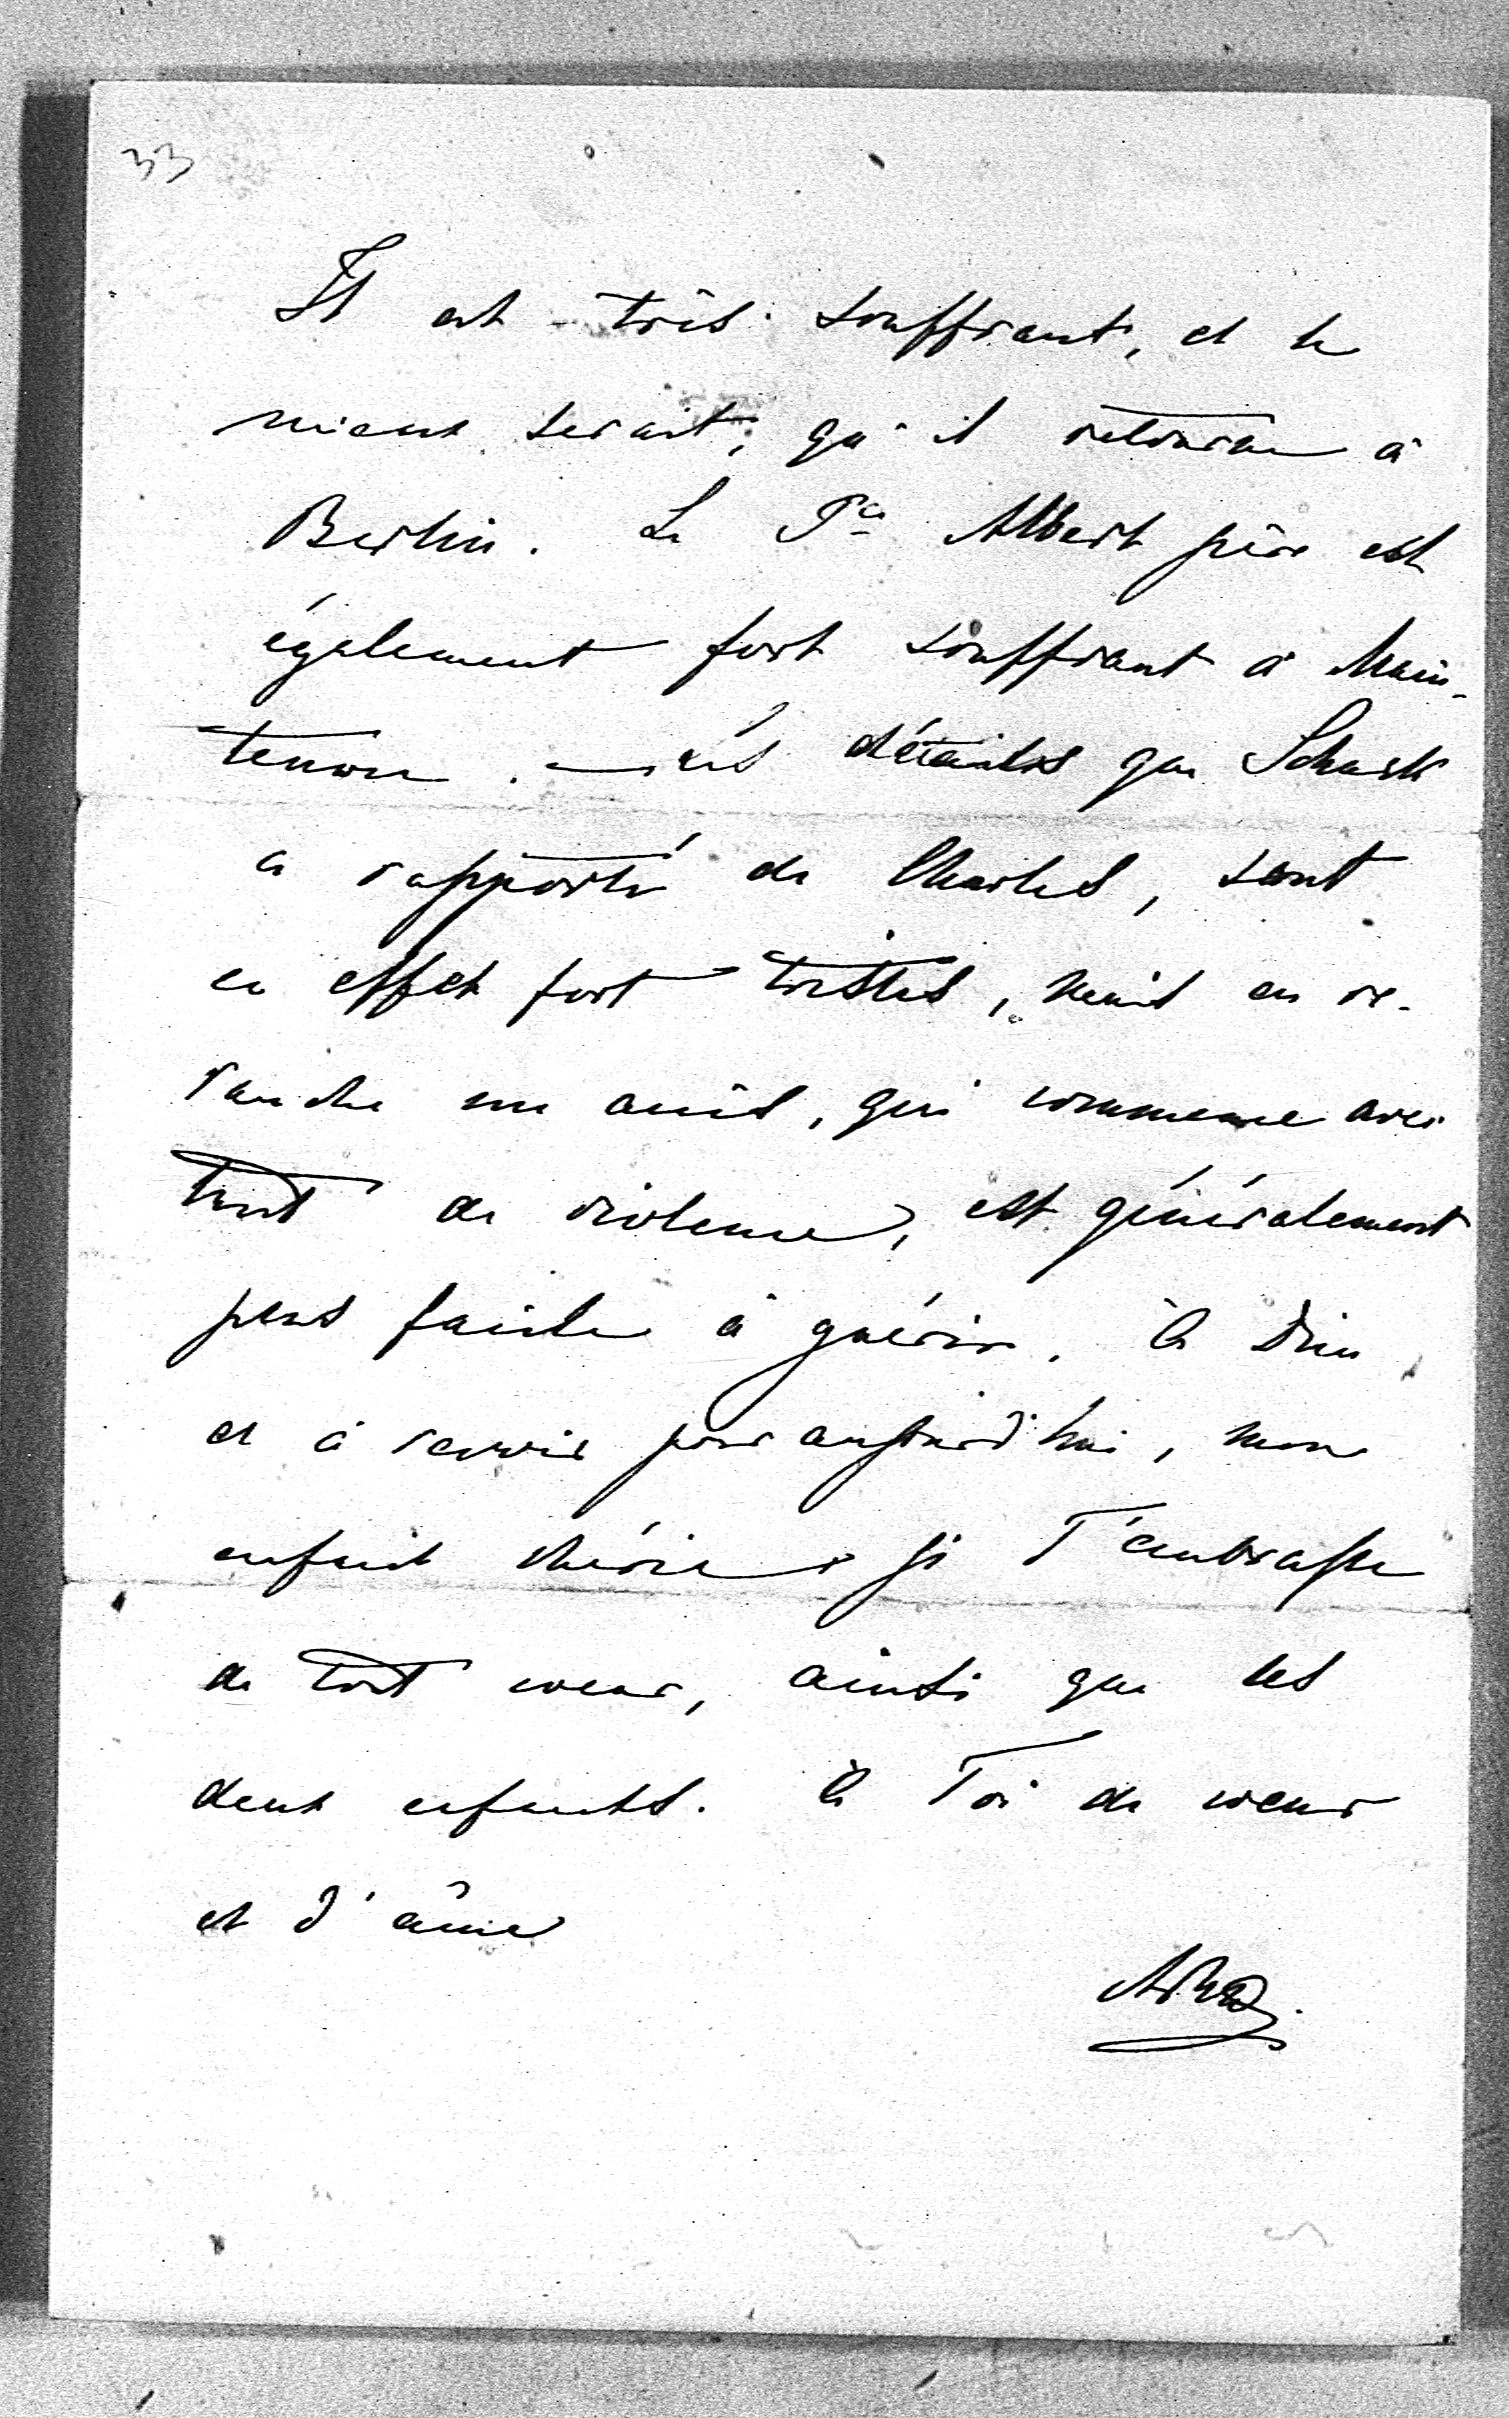 33
Il est très souffrant, et le
mieux serait, qu'il retourne à
Berlin. Le Pce Albert père est
également fort souffrant à Main-
tenon. Les détails que Schack
a rapporté de Charles, sont
en effet fort tristes, mais en re-
vanche un accès, qui commence avec
tant de violence, est généralement
plus facile à guérir. A Dieu
et à revoir pour aujourd'hui, mon
enfant chérie, je T'embrasse
de tout coeur, ainsi que les
deux enfants. A Toi de coeur
et d'âme